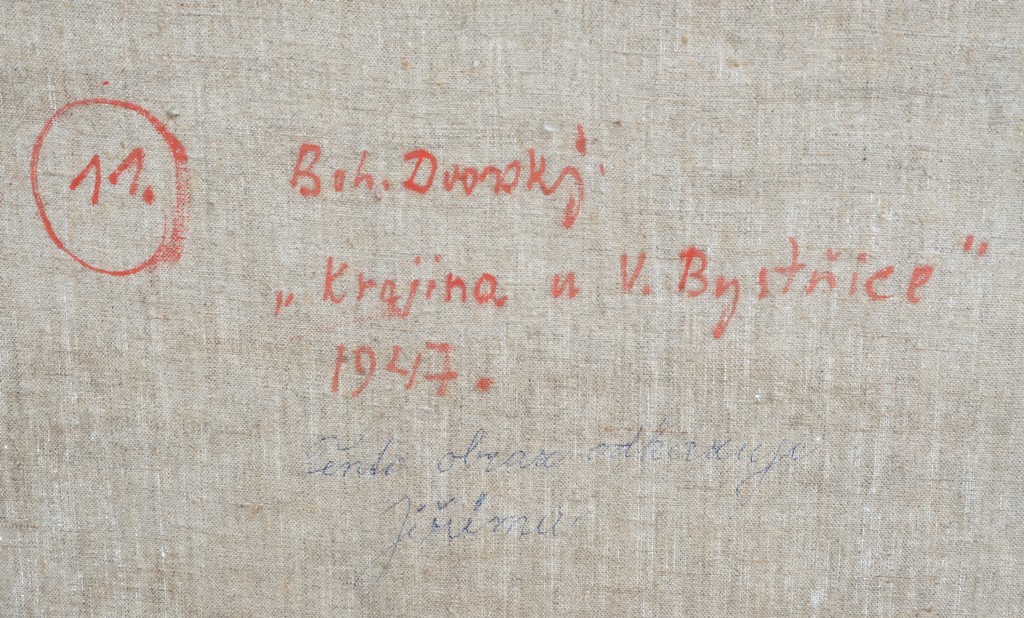 11.
Boh. Dvorský.
„Krajina u V. Bystřice"
1947.
Tento obraz odkazuje
Jiřímu